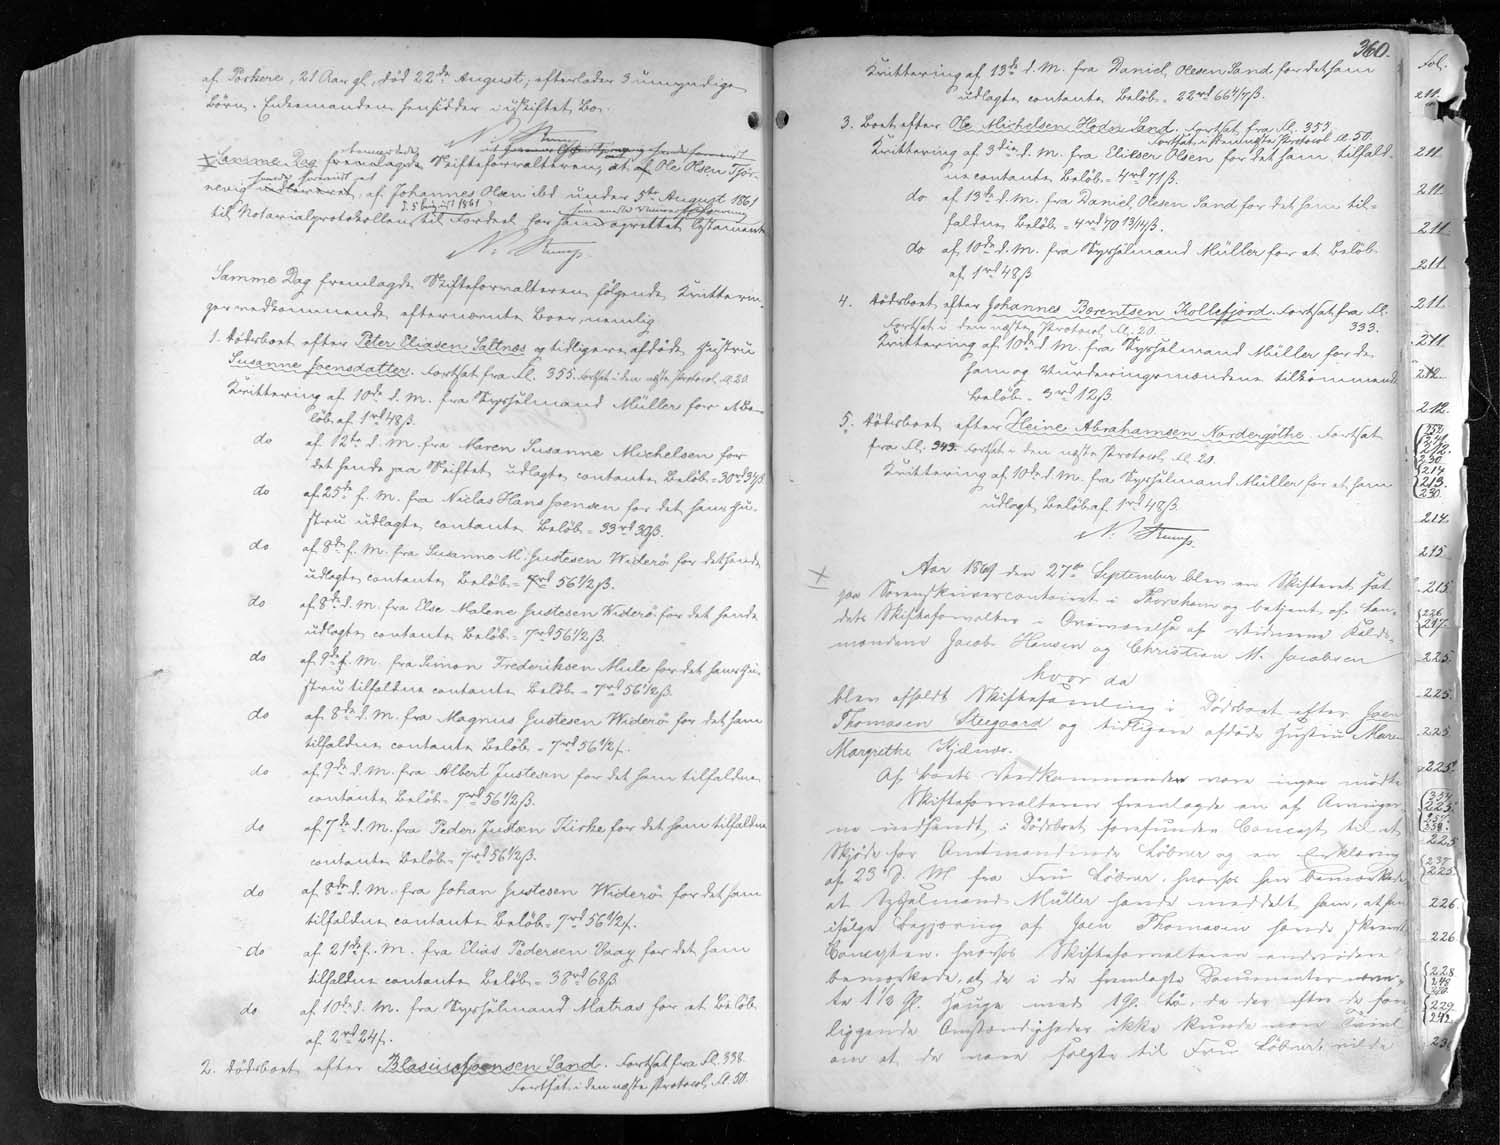 af Porkere, 21 Aar gl, død 22de August, efterlader 3 umyndige
Børn. Enkemanden henhidder i uskiftet Bo.
N. Krump.
Samme Dag fremlagde Skifteforvalteren, at Ole Olsen Tjør-
nevig af Johannes Olsen ibd under 5te August 1861
til Notarialprotokollen til Fordeel for ham oprettet Testamente
N. Krump.
Samme Dag fremlagde Skifteforvalteren følgende Kvitterin-
ger vedkommende efternævnte Boer, nemlig
1. Dødsboet efter Peter Eliasen Saltnæs og tidligere afdøde Hustru
Susanne Joensdatter. Fortsat fra Fl. 355. Fortsat i den næste Protocol, Fl. 20.
Kvittering af 10de d. M. fra Sysselmand Müller for et Be-
løb af 1rd 48ß.
do af 12te d. M. fra Maren Susanne Michelsen for
det hende paa Skiftet udlagte contante Beløb = 30rd 34ß
do af 25de f. M. fra Niclas Hans Joensen for det hans Hu-
stru udlagte contante Beløb = 33rd 30ß.
do af 8de f. M. fra Susanne M. Justesen Widerø for det hende
udlagte contante Beløb = 7rd 56 1/2 ß.
do af 8de d. M. fra Else Malene Justesen Widerø for det hende
udlagte contante Beløb = 7rd 56 1/2 ß.
do af 9de f. M. fra Simon Frederiksen Mule for det hans Hu-
stru tilfaldne contante Beløb = 7rd 56 1/2 ß.
do af 8de d. M. fra Magnus Justesen Widerø for det ham
tilfaldne contante Beløb = 7rd 56 1/2 ß.
do af 9de d. M. fra Albert Justesen for det ham tilfaldne
contante Beløb = 7rd 56 1/2 ß.
do af 7de d. M. fra Peder Justesen Kirke for det ham tilfaldne
contante Beløb = 7rd 56 1/2 ß.
do af 8de d. M. fra Johan Justesen Widerø for det ham
tilfaldne contante Beløb = 7rd 56 1/2 ß.
do af 21de f. M. fra Elias Pedersen Vaag for det ham
tilfaldne contante Beløb = 38rd 68ß.
do af 10de d. M. fra Sysselmand Matras for et Beløb
af 2rd 24ß.
2. Dødsboet efter Blasius Joensen Sand. Fortsat fra Fl. 338.
Fortsat i den næste Protocol, Fl. 50.
360.
Kvittering af 13de d. M. fra Daniel Olesen Sand for det ham
udlagte contante Beløb = 22rd 66 4/7 ß.
3. Boet efter Ole Michelsen Hedn Sand. Fortsat fra Fl. 355
Fortsat i den næste Protocol Fl. 50.
Kvittering af 3die d. M. fra Elieser Olsen for det ham tilfald-
ne contante Beløb = 4rd 71ß.
do af 13de d. M. fra Daniel Olesen Sand for det ham til-
faldne Beløb = 4rd 70 13/14 ß.
do af 10de d. M. fra Sysselmand Müller for et Beløb
af 1rd 48ß
4. Dødsboet efter Johannes Berentsen Kollefjord. Fortsat fra Fl.
333.
Fortsat i den næste Protocol, Fl. 20.
Kvittering af 10de d. M. fra Sysselmand Müller for de
ham og Vurderingsmændene tilkommende
Beløb = 3rd 12ß.
5. Dødsboet efter Heine Abrahamsen Nordregöthe. Fortsat
fra Fl. 343. Fortsat i den næste Protocol, Fl. 20.
Kvittering af 10de d. M. fra Sysselmand Müller for et ham
udlagt Beløb af 1rd 48ß.
N. Krump.
Aar 1869 den 27de September blev en Skifteret sat
paa Sorenskrivercontoiret i Thorshavn og betjent af Lan-
dets Skifteforvalter i Overværelse af Vidnerne Kulds-
mændene Jacob Hansen og Christian M. Jacobsen
hvor da
blev afholdt Skiftesamling i Dødsboet efter Joen
Thomasen Steegaard og tidligere afdøde Hustru Maren
Margrethe Kjelnæs.
Af Boets Vedkommende vare ingen mødte
Skifteforvalteren fremlagde en af Arvinger-
ne indsendt i Dødsboet forefunden Concept til et
Skjøde for Amtmandinde Løbner og en Erklæring
af 23 d. M fra Fru Løbner, hvorhos han bemærkede
at Sysselmand Müller havde meddelt ham, at han
ifølge Begjæring af Joen Thomasen havde skrevet
Concepten, hvorhos Skifteforvalteren endvidere
bemærkede, at da i de fremlagte Documenter nævn-
te 1 1/3 Gl. Hauge med 1 Gl. da der efter de fore-
liggende Omstændigheder ikke kunde være Tvivl
om at de vare solgte til Fru Løbner, vilde
Fol.
211.
211
211
211
211
211
211
212.
212.
214
215
215
225
225
225
225
226
226